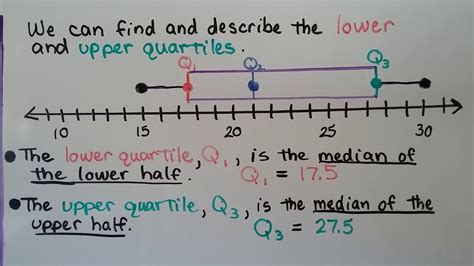 We can find and describe the lower
and upper quartiles.
Q₁ Q₂ Q₃
10 15 20 25 30
The lower quartile, Q₁, is the median of
the lower half. Q₁ = 17.5
The upper quartile, Q₃, is the median of the
upper half. Q₃ = 27.5